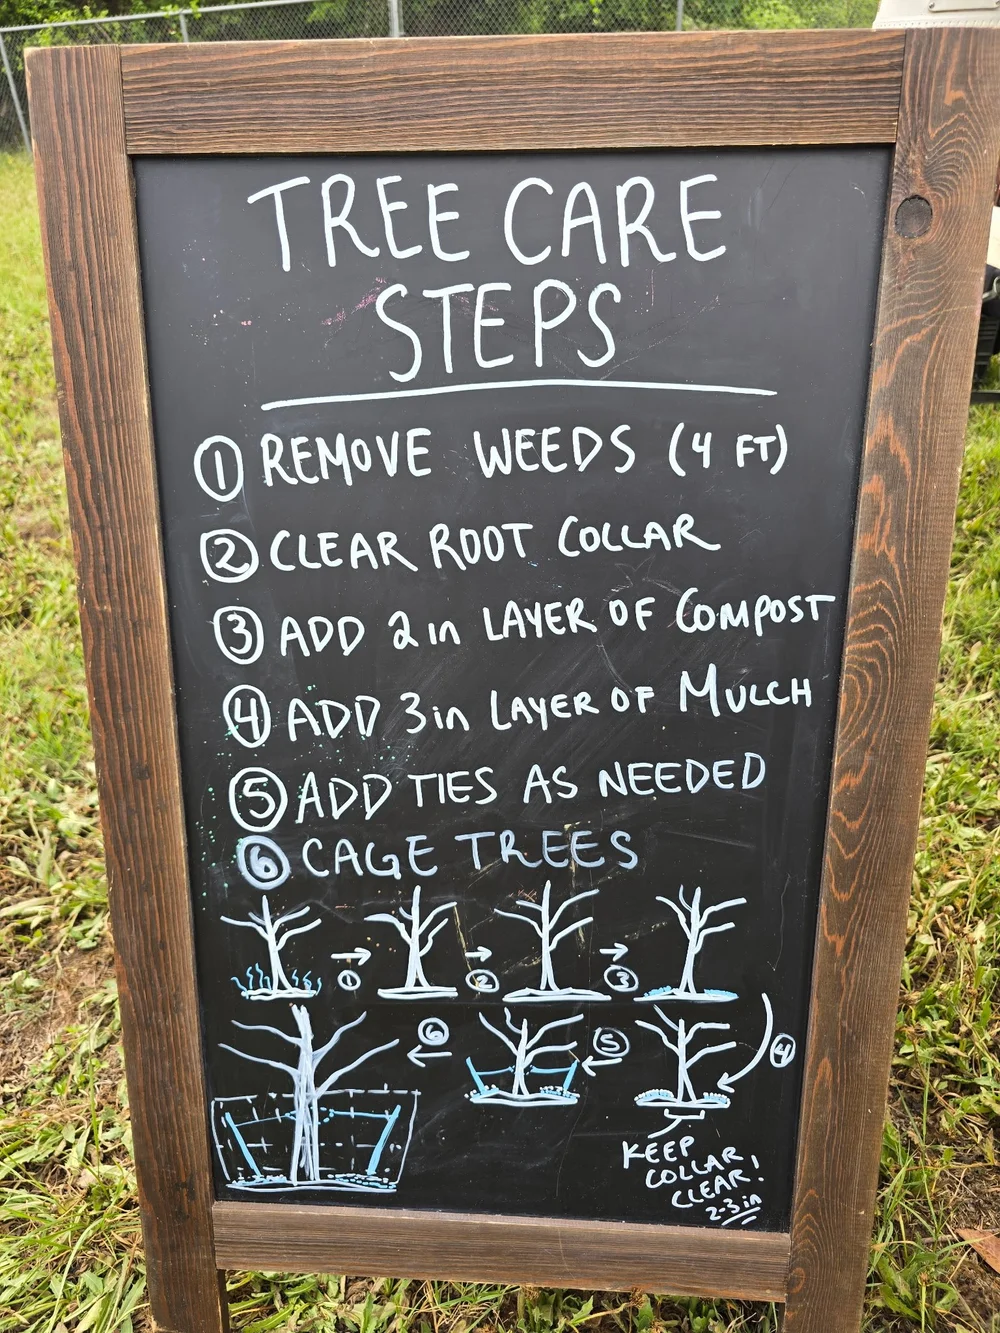 TREE CARE
STEPS
1 REMOVE WEEDS (4 FT)
2 CLEAR ROOT COLLAR
3 ADD 2in LAYER OF COMPOST
4 ADD 3in LAYER OF MULCH
5 ADD TIES AS NEEDED
6 CAGE TREES
1 2 3
6 5 4
KEEP
COLLAR
CLEAR!
2-3in